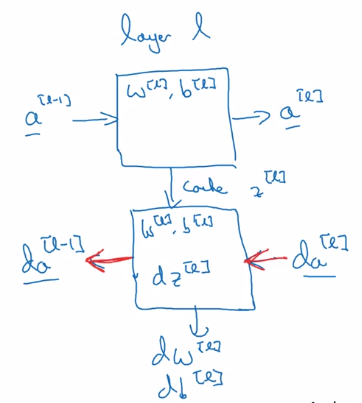 layer l
w^[l], b^[l]
a^[l-1]
a^[l]
cache z^[l]
w^[l], b^[l]
da^[l-1]
dz^[l]
da^[l]
dw^[l]
db^[l]